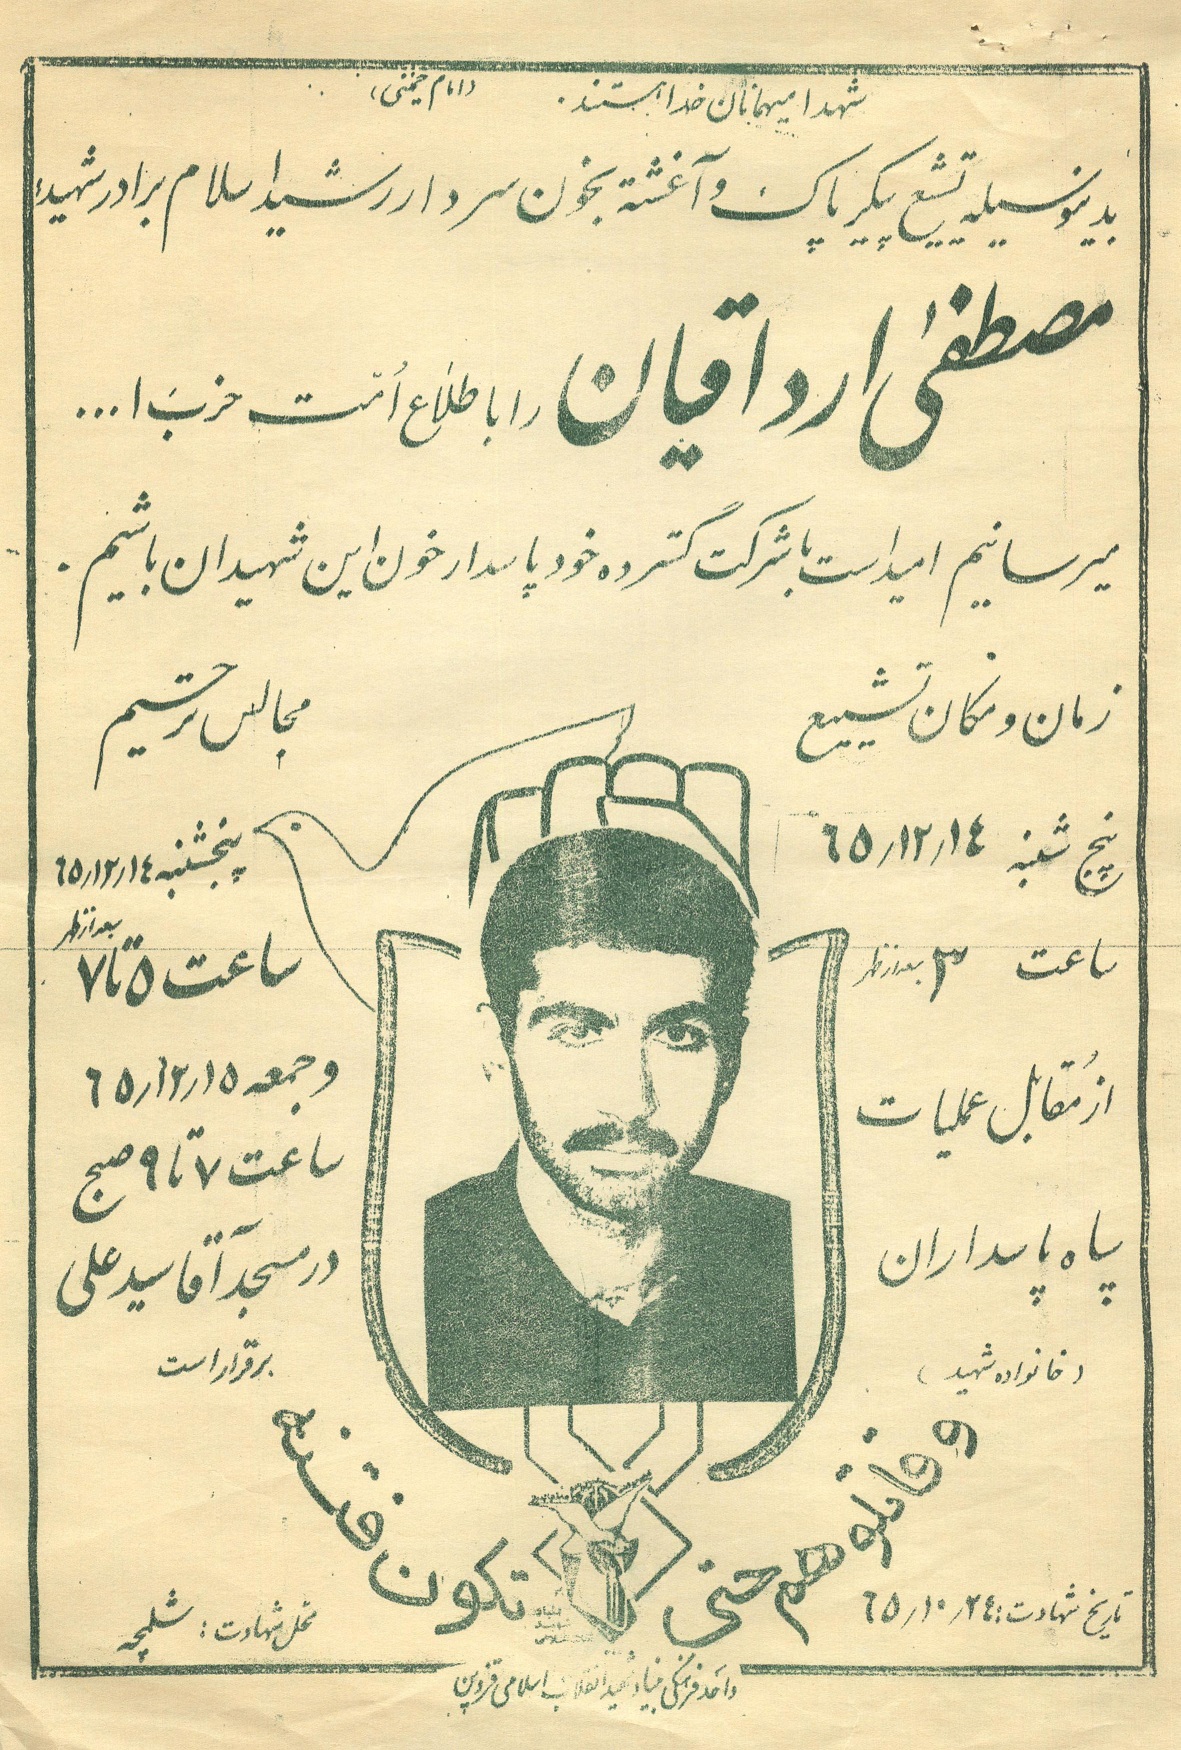 شهدا میهمانان خدا هستند. (امام خمینی)
بدینوسیله تشییع پیکر پاک و آغشته بخون سردار رشید اسلام برادر شهید:
مصطفیٰ ارداقیان را باطلاع اُمّت حزب ا...
میرسانیم امید است با شرکت گسترده خود پاسدار خون این شهیدان باشیم.
زمان و مکان تشییع
پنج شنبه ٦٥/١٢/١٤
ساعت ٣ بعد از ظهر
از مُقابل عملیات
سپاه پاسداران
(خانواده شهید)
مجالس ترحیم
پنجشنبه ٦٥/١٢/١٤
ساعت ٥ تا ٧ بعد از ظهر
و جمعه ٦٥/١٢/١٥
ساعت ٧ تا ٩ صبح
در مسجد آقا سید علی
برقرار است
و قاتلوهم حتی لا تکون فتنه
تاریخ شهادت: ٦٥/١٠/٢٤
محل شهادت: شلمچه
واحد فرهنگی بنیاد شهید انقلاب اسلامی قزوین